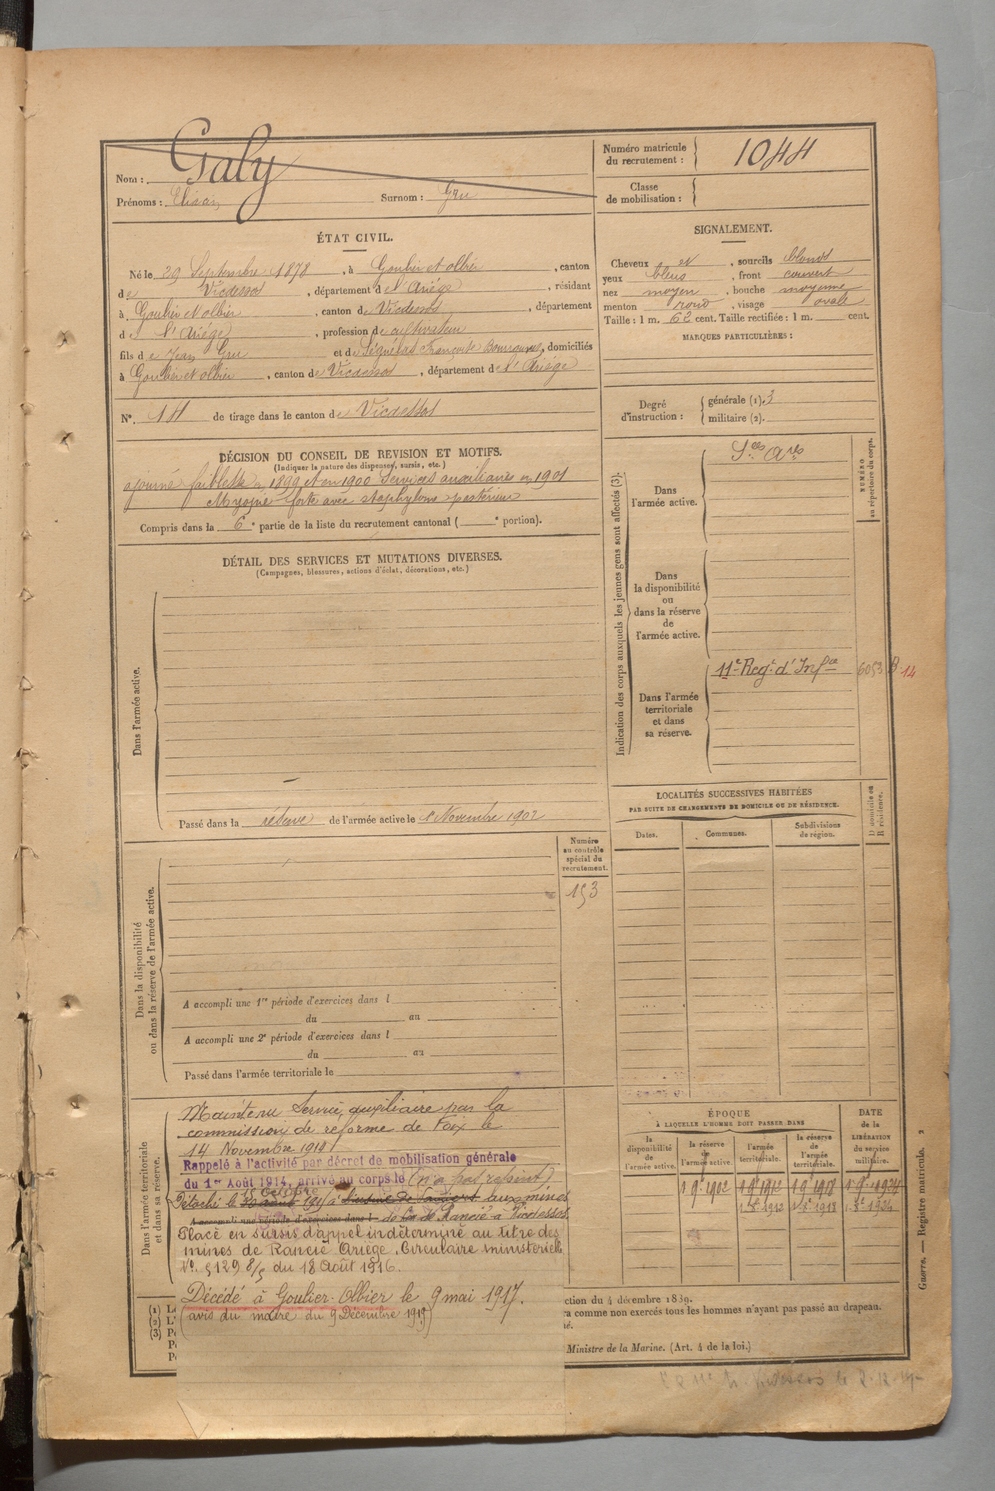 Nom : Galy
Prénoms : Surnom : Gru
Numéro matricule
du recrutement : 1044
Classe
de mobilisation :
ÉTAT CIVIL.
Né le 29 Septembre 1878, à Goulier et Olbier, canton
de Vicdessos, département de l'Ariège, résidant
à Goulier et Olbier, canton de Vicdessos, département
de l'Ariège, profession de cultivateur
fils de Jean Gru et de Françoise, domiciliés
à Goulier et Olbier, canton de Vicdessos, département de l'Ariège
N° 14 de tirage dans le canton de Vicdessos
SIGNALEMENT.
Cheveux et, sourcils blonds
yeux bleus, front couvert
nez moyen, bouche moyenne
menton rond, visage ovale
Taille : 1 m. 62 cent. Taille rectifiée : 1 m. cent.
MARQUES PARTICULIÈRES :
Degré
d'instruction :
générale (1). 3
militaire (2).
DÉCISION DU CONSEIL DE REVISION ET MOTIFS.
(Indiquer la nature des dispenses, sursis, etc.)
ajourné faiblesse 1899 et en 1900 Services auxiliaires en 1901
Myopie forte avec staphylome postérieur
Compris dans la 6e partie de la liste du recrutement cantonal ( e portion).
DÉTAIL DES SERVICES ET MUTATIONS DIVERSES.
(Campagnes, blessures, actions d'éclat, décorations, etc.)
Dans l'armée active.
Passé dans la réserve de l'armée active le 1 Novembre 1902
Indication des corps auxquels les jeunes gens sont affectés (3).
NUMÉRO
au répertoire du corps.
Dans
l'armée active.
Sces Ares
Dans
la disponibilité
ou
dans la réserve
de
l'armée active.
Dans l'armée
territoriale
et dans
sa réserve.
11e Regt d'Infce 6053 14
LOCALITÉS SUCCESSIVES HABITÉES
PAR SUITE DE CHANGEMENTS DE DOMICILE OU DE RÉSIDENCE.
Dates. Communes. Subdivisions
de région.
D domicile ou
R résidence.
Dans la disponibilité
ou dans la réserve de l'armée active.
Numéro
au contrôle
spécial du
recrutement.
153
A accompli une 1re période d'exercices dans l
du au
A accompli une 2e période d'exercices dans l
du au
Passé dans l'armée territoriale le
Dans l'armée territoriale
et dans sa réserve.
Maintenu Service auxiliaire par la
commission de réforme de Foix le
14 Novembre 1914
Rappelé à l'activité par décret de mobilisation générale
du 1er Août 1914, arrivé au corps le (n'a pas rejoint)
Détaché le 15 Octobre 191 à aux mines
A accompli une période d'exercices dans l de Rancié à Vicdessos
Placé en sursis d'appel indéterminé au titre des
mines de Rancié Ariège. Circulaire ministérielle
N° 5129 du 18 Août 1916.
Décédé à Goulier-Olbier le 9 mai 1917.
(avis du maire du 9 Décembre 1919)
ÉPOQUE
À LAQUELLE L'HOMME DOIT PASSER DANS
la
disponibilité
de
l'armée active.
la réserve
de
l'armée active.
l'armée
territoriale.
la réserve
de
l'armée
territoriale.
DATE
de la
LIBÉRATION
du service
militaire.
1 9e 1902 1 9e 1912 1 9e 1918 1 9e 1924
1 8e 1912 1 8e 1918 1 8e 1924
(1)
(2)
(3)
ction du 4 décembre 1839.
ra comme non exercés tous les hommes n'ayant pas passé au drapeau.
Ministre de la Marine. (Art. 4 de la loi.)
Guerre. — Registre matricule. 2